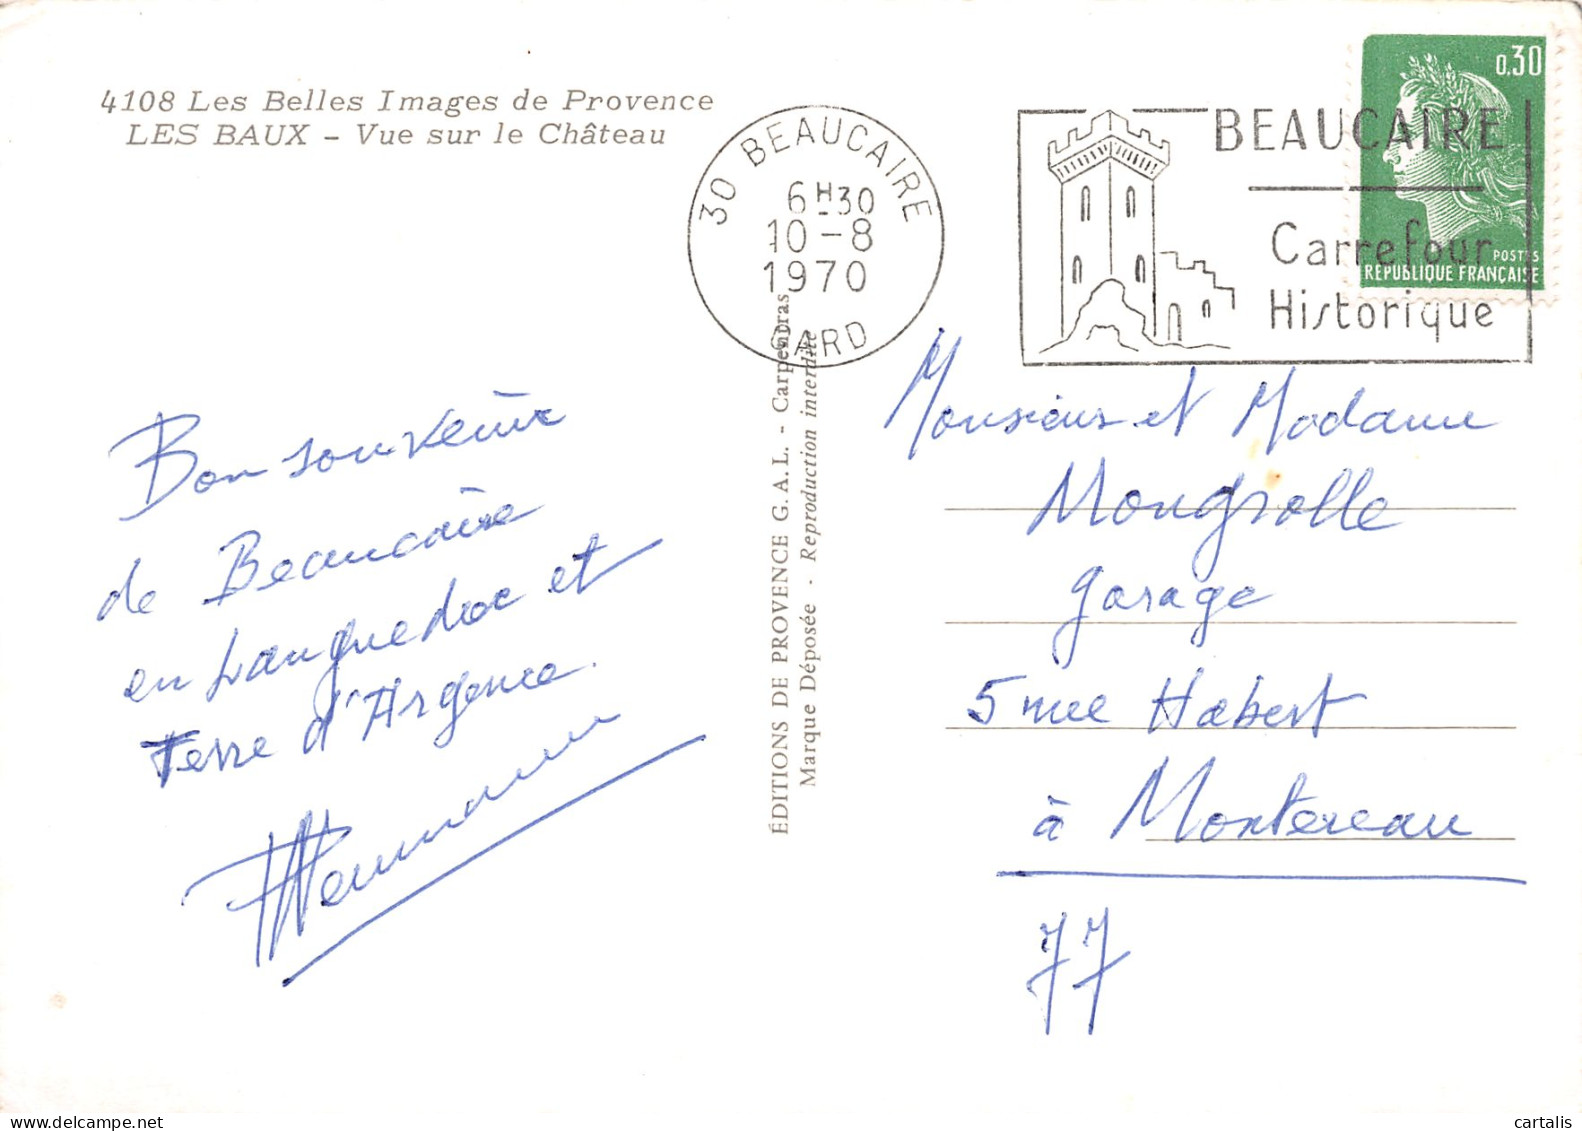 4108 Les Belles Images de Provence
LES BAUX - Vue sur le Château
30 BEAUCAIRE
6H30
10-8
1970
GARD
BEAUCAIRE
Carrefour
Historique
0,30
POSTES
RÉPUBLIQUE FRANÇAISE
Bon souvenir
de Beaucaire
en Languedoc et
Terre d'Argence.
ÉDITIONS DE PROVENCE G.A.L. - Carpentras
Marque Déposée - Reproduction interdite
Monsieur et Madame
Mongrolle
garage
5 rue Habert
à Montereau
77
cartalis